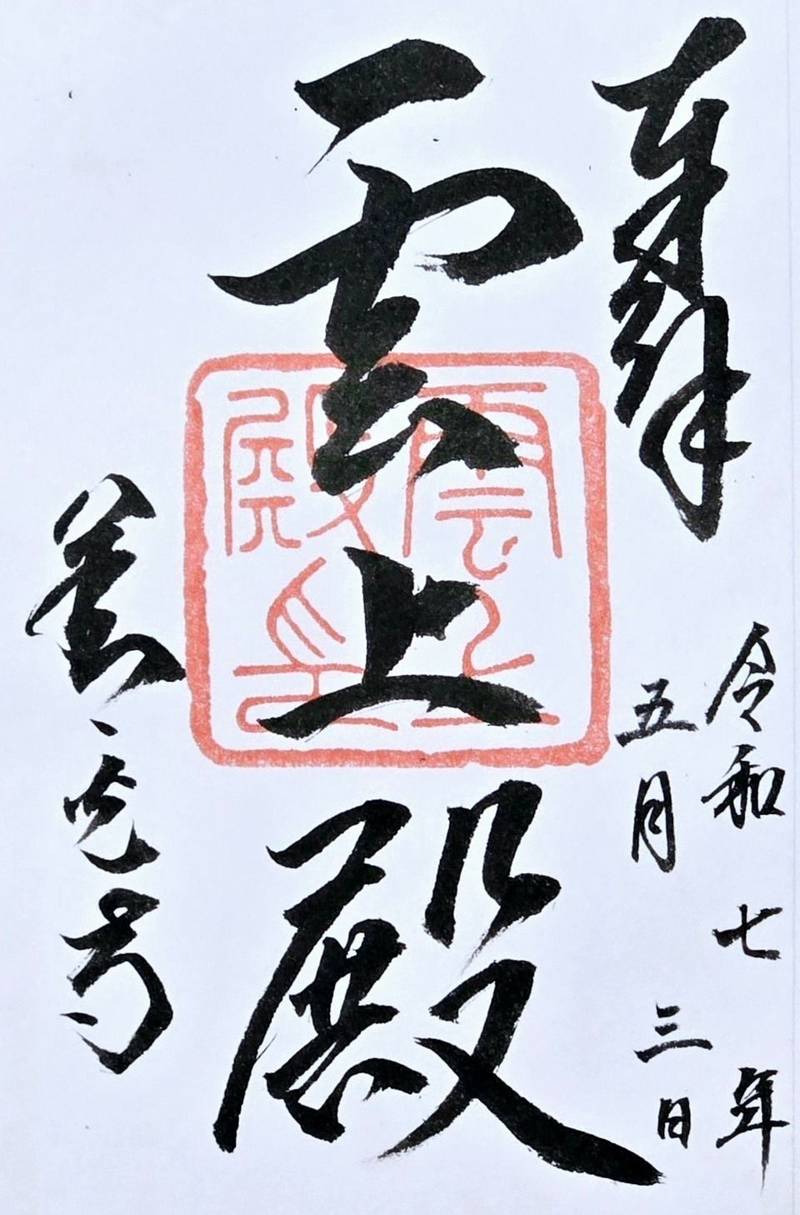 奉拝
令和七年
五月三日
雲上殿
善光寺
雲上殿印